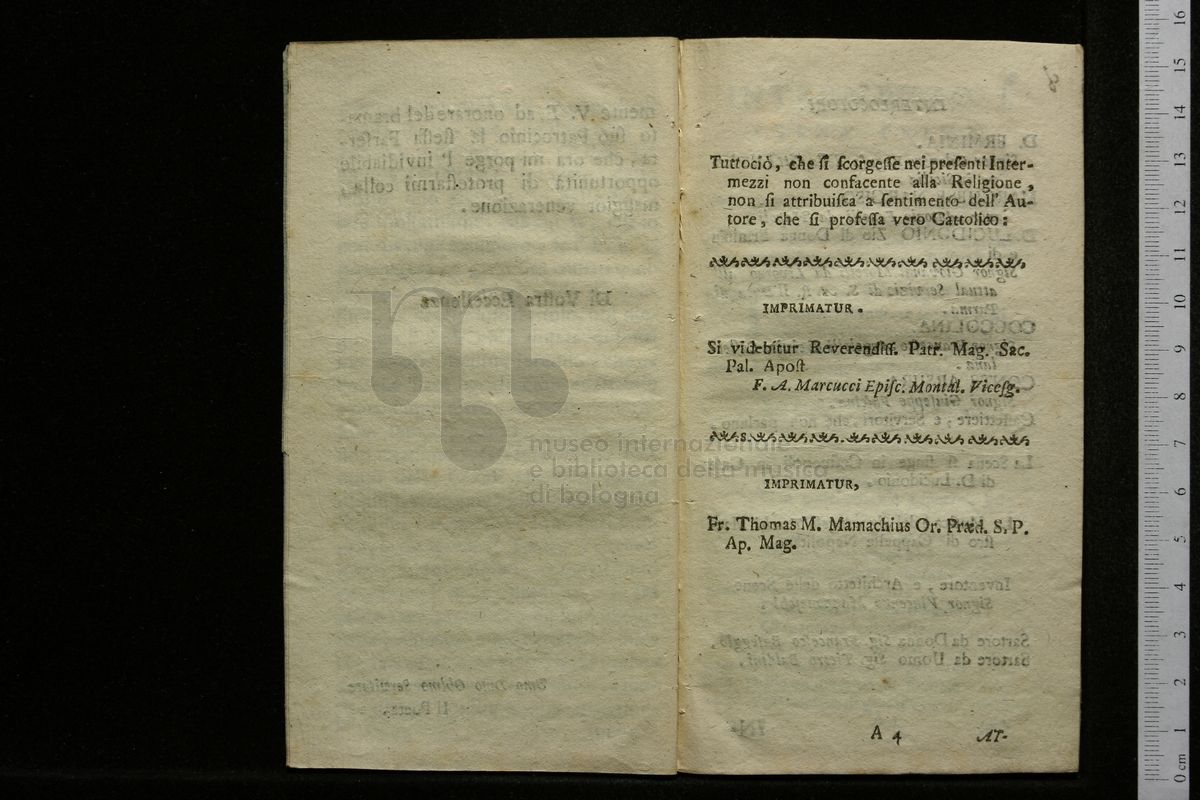 Tuttociò, che ſi ſcorgeſſe nei preſenti Inter-
mezzi non confacente alla Religione,
non ſi attribuiſca a ſentimento dell' Au-
tore, che ſi profeſſa vero Cattolico:
IMPRIMATUR.
Si videbitur Reverendiſſ. Patr. Mag. Sac.
Pal. Apoſt
F. A. Marcucci Epiſc. Montal. Viceſg.
IMPRIMATUR,
Fr. Thomas M. Mamachius Or. Præd. S. P.
Ap. Mag.
A 4
AT-
museo internazionale
e biblioteca della musica
di bologna
0 cm 1 2 3 4 5 6 7 8 9 10 11 12 13 14 15 16